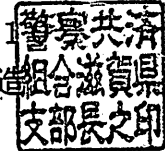 警察共済
組合滋賀県
支部長之印
造